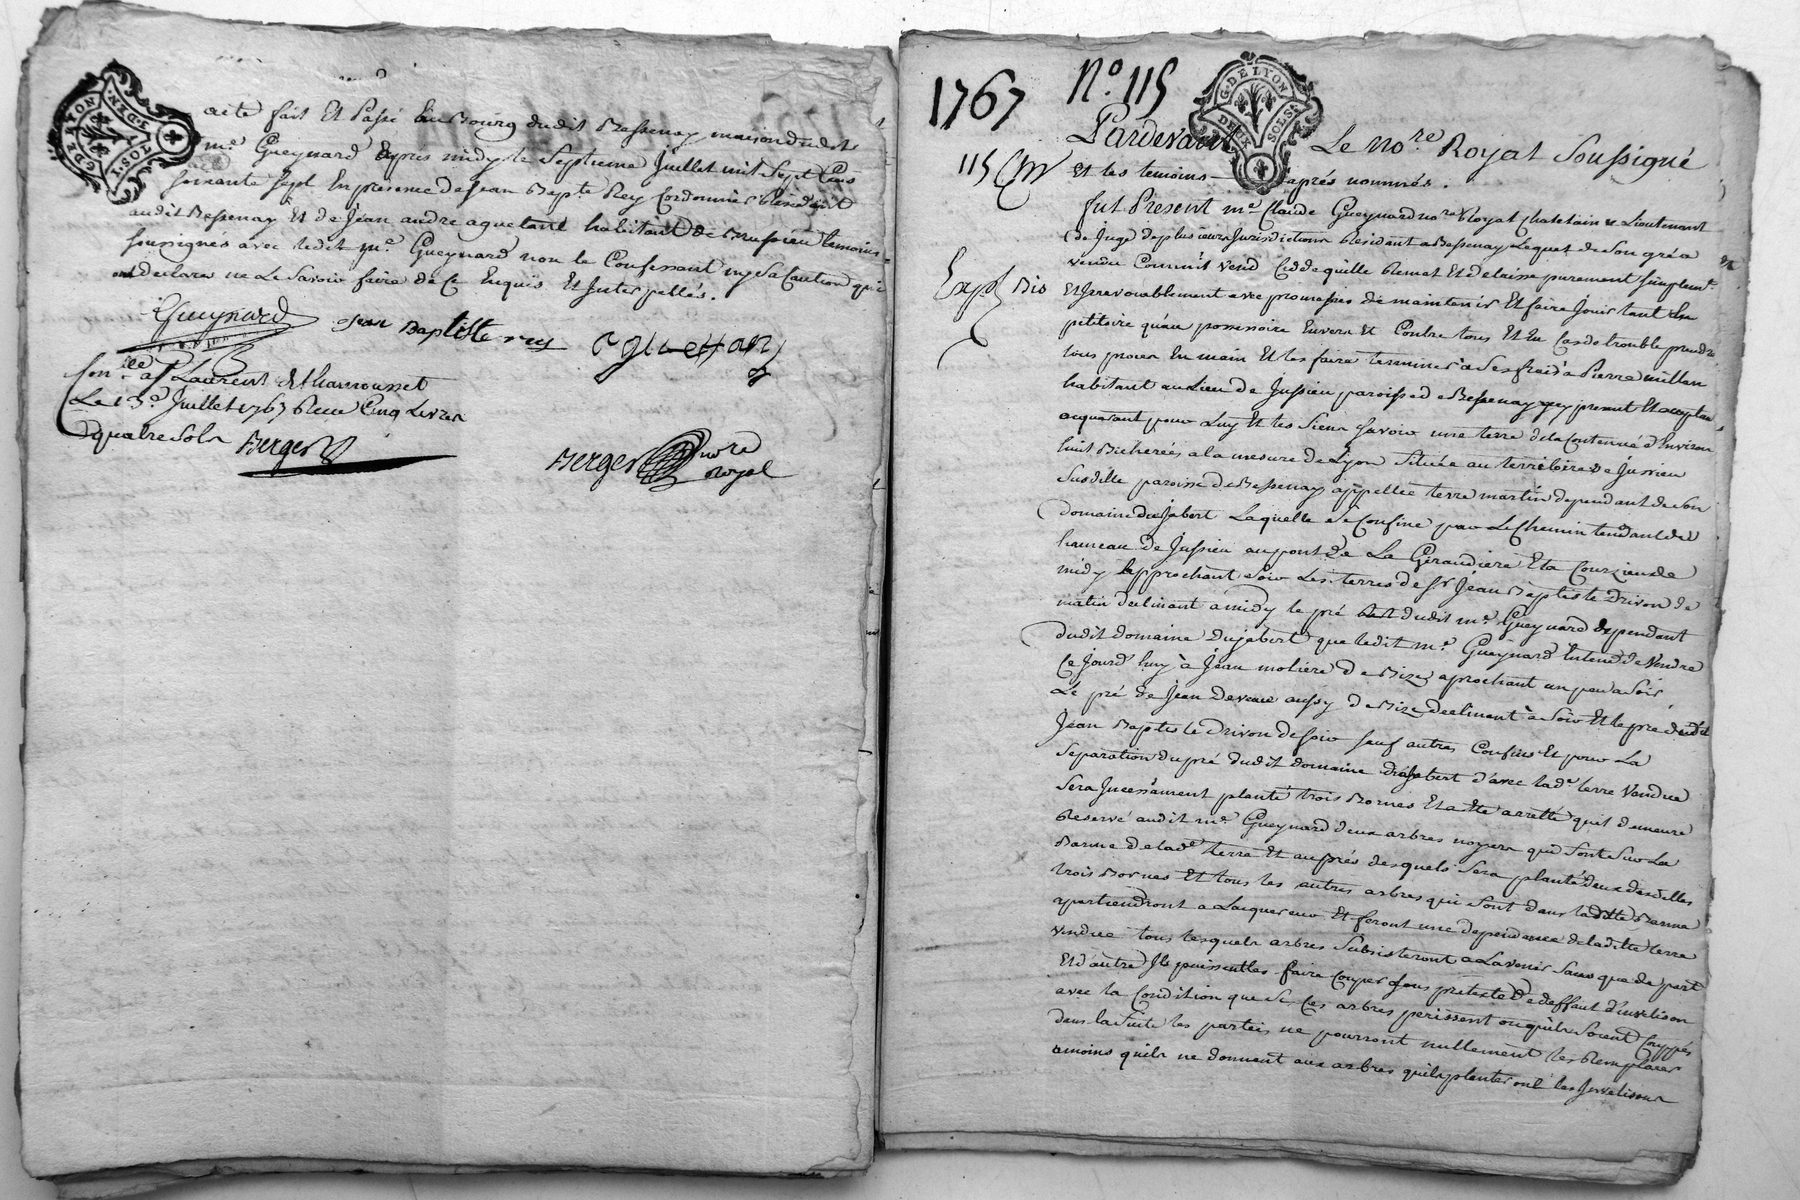 G. DE LYON
DEUX SOLS
acte fait Et Passé au Bourg dudit Bessenay maison dudit
me. Gueynard Après midy le Septieme Juillet mil Sept Cens
soixante sept En presence de Jean Bapte. Rey Cordonnier Residant
audit Bessenay Et de Jean andre aguetant habitant de Brussieu temoins
soussignés avec ledit me. Gueynard non le Confessant ny sa Caution qui
ont declaré ne Le Savoir faire de Ce Enquis Et Interpellés.
Gueynard Jean Baptiste rey aguettan
Conllé a St Laurent de Chamousset
Le 13e. Juillet 1767 Receu Cinq Livres
quatre sols Berger
Berger nore
Royal
1767 No. 115
G. DE LYON
DEUX SOLS
Pardevant Le nore Royal Soussigné
115
Et les temoins aprés nommés.
fut Present me. Claude Gueynard nore Royal Chatelain & Lieutenant
de Juge de plusieurs Jurisdictions Residant a Bessenay Lequel de Son gré a
vendu Comme il vend Cedde quitte Remet Et delaisse purement simplemt.
Expd Bis
Et Irrevocablement avec promesses de maintenir Et faire Jouir tant au
petitoire qu'au possessoire Envers Et Contre tous Et En Cas de trouble prendre
tous procès En main Et les faire terminer à Ses frais à Pierre millan
habitant au Lieu de Jussieu paroisse de Bessenay icy present Et acceptant
acquerant pour Luy Et les Siens Savoir une terre de la Contenue d'Environ
huit Bicherées a la mesure de Lyon Située au territoire de Jussieu
Susditte paroisse de Bessenay appellée terre martin dependant de Son
domaine du Jabert Laquelle Se Confine par Le Chemin tendant du
hameau de Jussieu au pont de La Giraudiere Et a Courzieu de
midy approchant Soir Les terres de Sr. Jean Baptiste Drivon de
matin declinant a midy le pré dudit me. Gueynard dependant
dudit domaine du jabert que ledit me. Gueynard Entend de Vendre
Ce Jourd'huy à Jean moliere de Bize aprochant un peu a Soir
Le pré de Jean Deveaux aussy de Bize declinant à Soir Et le pré dudit
Jean Baptiste Drivon de Soir Sauf autres Confins Et pour La
Separation du pré dudit domaine du Jabert d'avec lade. terre Vendue
Sera Incessament planté trois Bornes Et a été arrêtté quil demeure
Reservé audit me. Gueynard deux arbres noyers qui Sont Sur La
Barme de lade. terre Et auprés desquels Sera planté deux desdittes
trois Bornes Et tous les autres arbres qui Sont dans laditte Barme
apartiendront a Lacquereur Et feront une dependance de laditte terre
vendue tous lesquels arbres Subsisteront a Lavenir Sans que de part
Et d'autre Ils puissent les faire Couper Sous pretexte de deffaut d'invetison
avec la Condition que Si Ces arbres perissent ou qu'ils Soient Couppés
dans la Suite les parties ne pourront nullement les Remplacer
amoins qu'ils ne donnent aux arbres qu'ils planteront les Invetisons